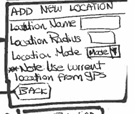 ADD NEW LOCATION
Location Name
Location Radius
Location Mode Mode
*Note Use current
location from gps
BACK